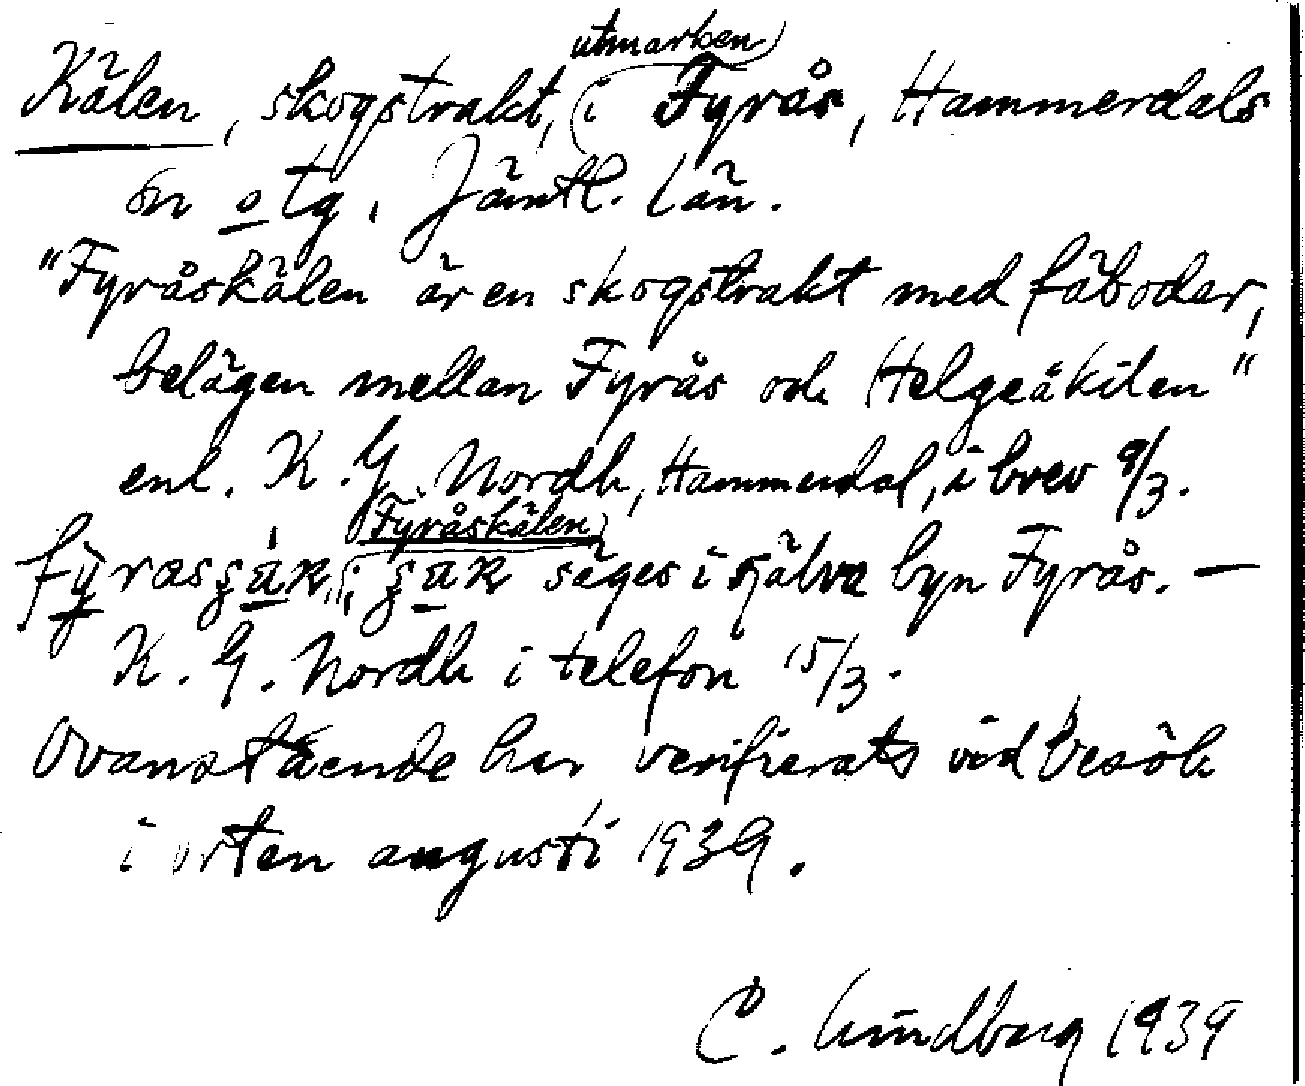 utmarken
Kälen, skogstrakt, i Fyrås, Hammerdals
sn o tg, Jämtl. län.
"Fyråskälen är en skogstrakt med fäbodar,
belägen mellan Fyrås och Helgeåkilen"
enl. K. G. Nordh, Hammerdal, i brev 9/3.
Fyråskälen
säges i själva byn Fyrås. —
K. G. Nordh i telefon 15/3.
Ovanstående har verifierats vid besök
i orten augusti 1939.
C. Lundberg 1939